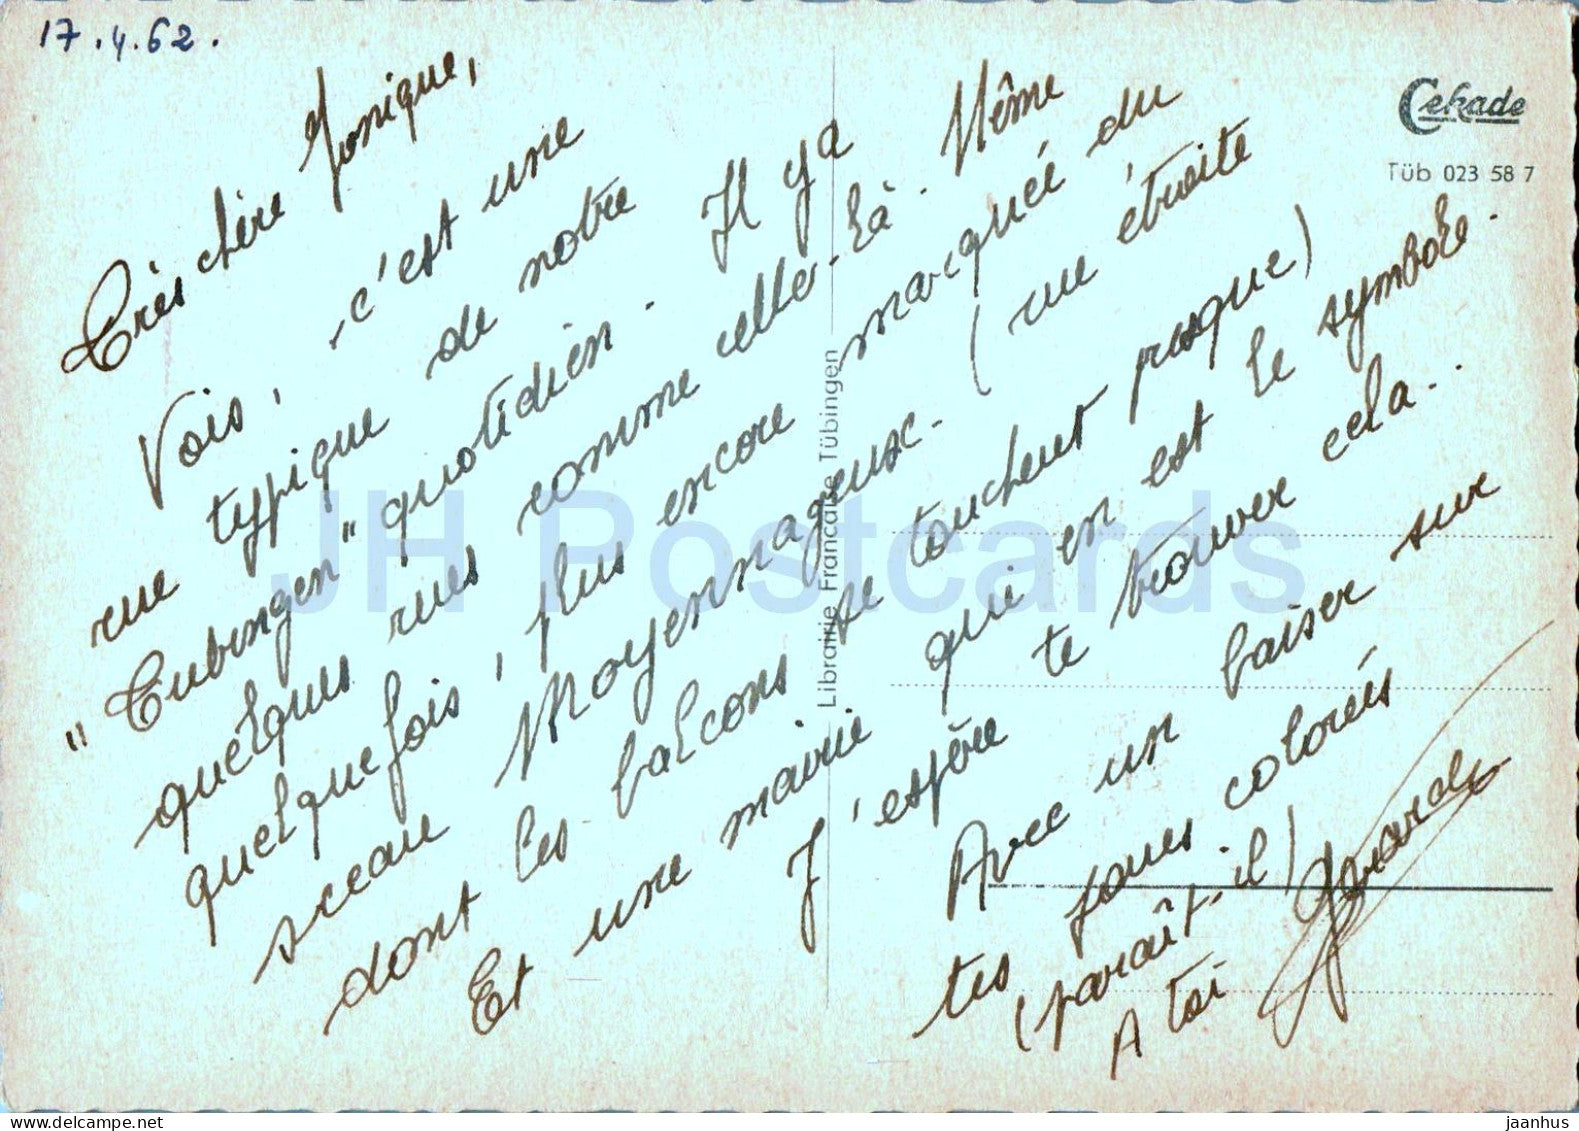 17.4.62.
Très chère Monique,
Vois, c'est une
rue typique de notre
"Tubingen" quotidien. Il y a
quelques rues comme celle-là. Même
quelquefois, plus encore marquée du
sceau Moyennageux. (rue étroite
dont les balcons se touchent presque)
Et une mairie qui en est le symbole.
J'espère te trouver cela..
Avec un baiser sur
tes joues colorées
(paraît-il)
A toi
Cekade
Tüb 023 58 7
Librairie Francaise Tübingen
JH Postcards
www.delcampe.net
jaanhus